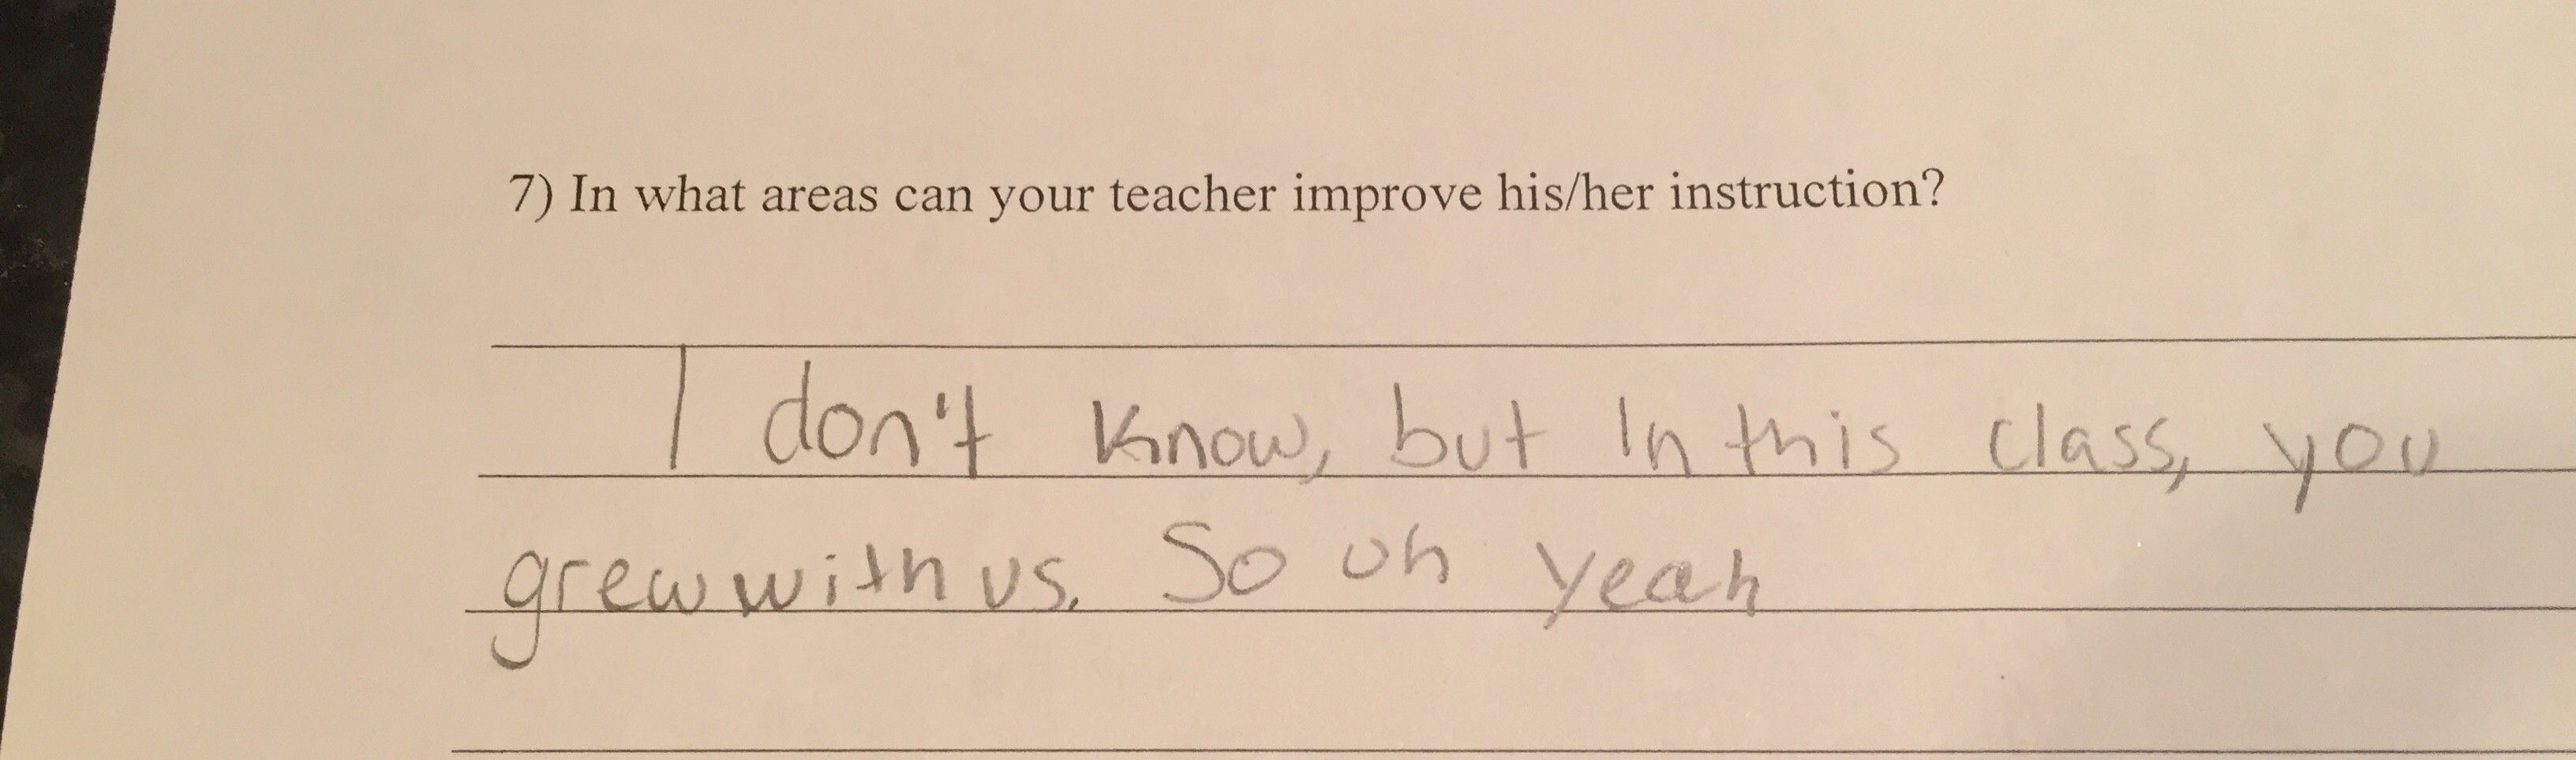 7) In what areas can your teacher improve his/her instruction?
I don't know, but In this class, you
grew with us. So uh yeah